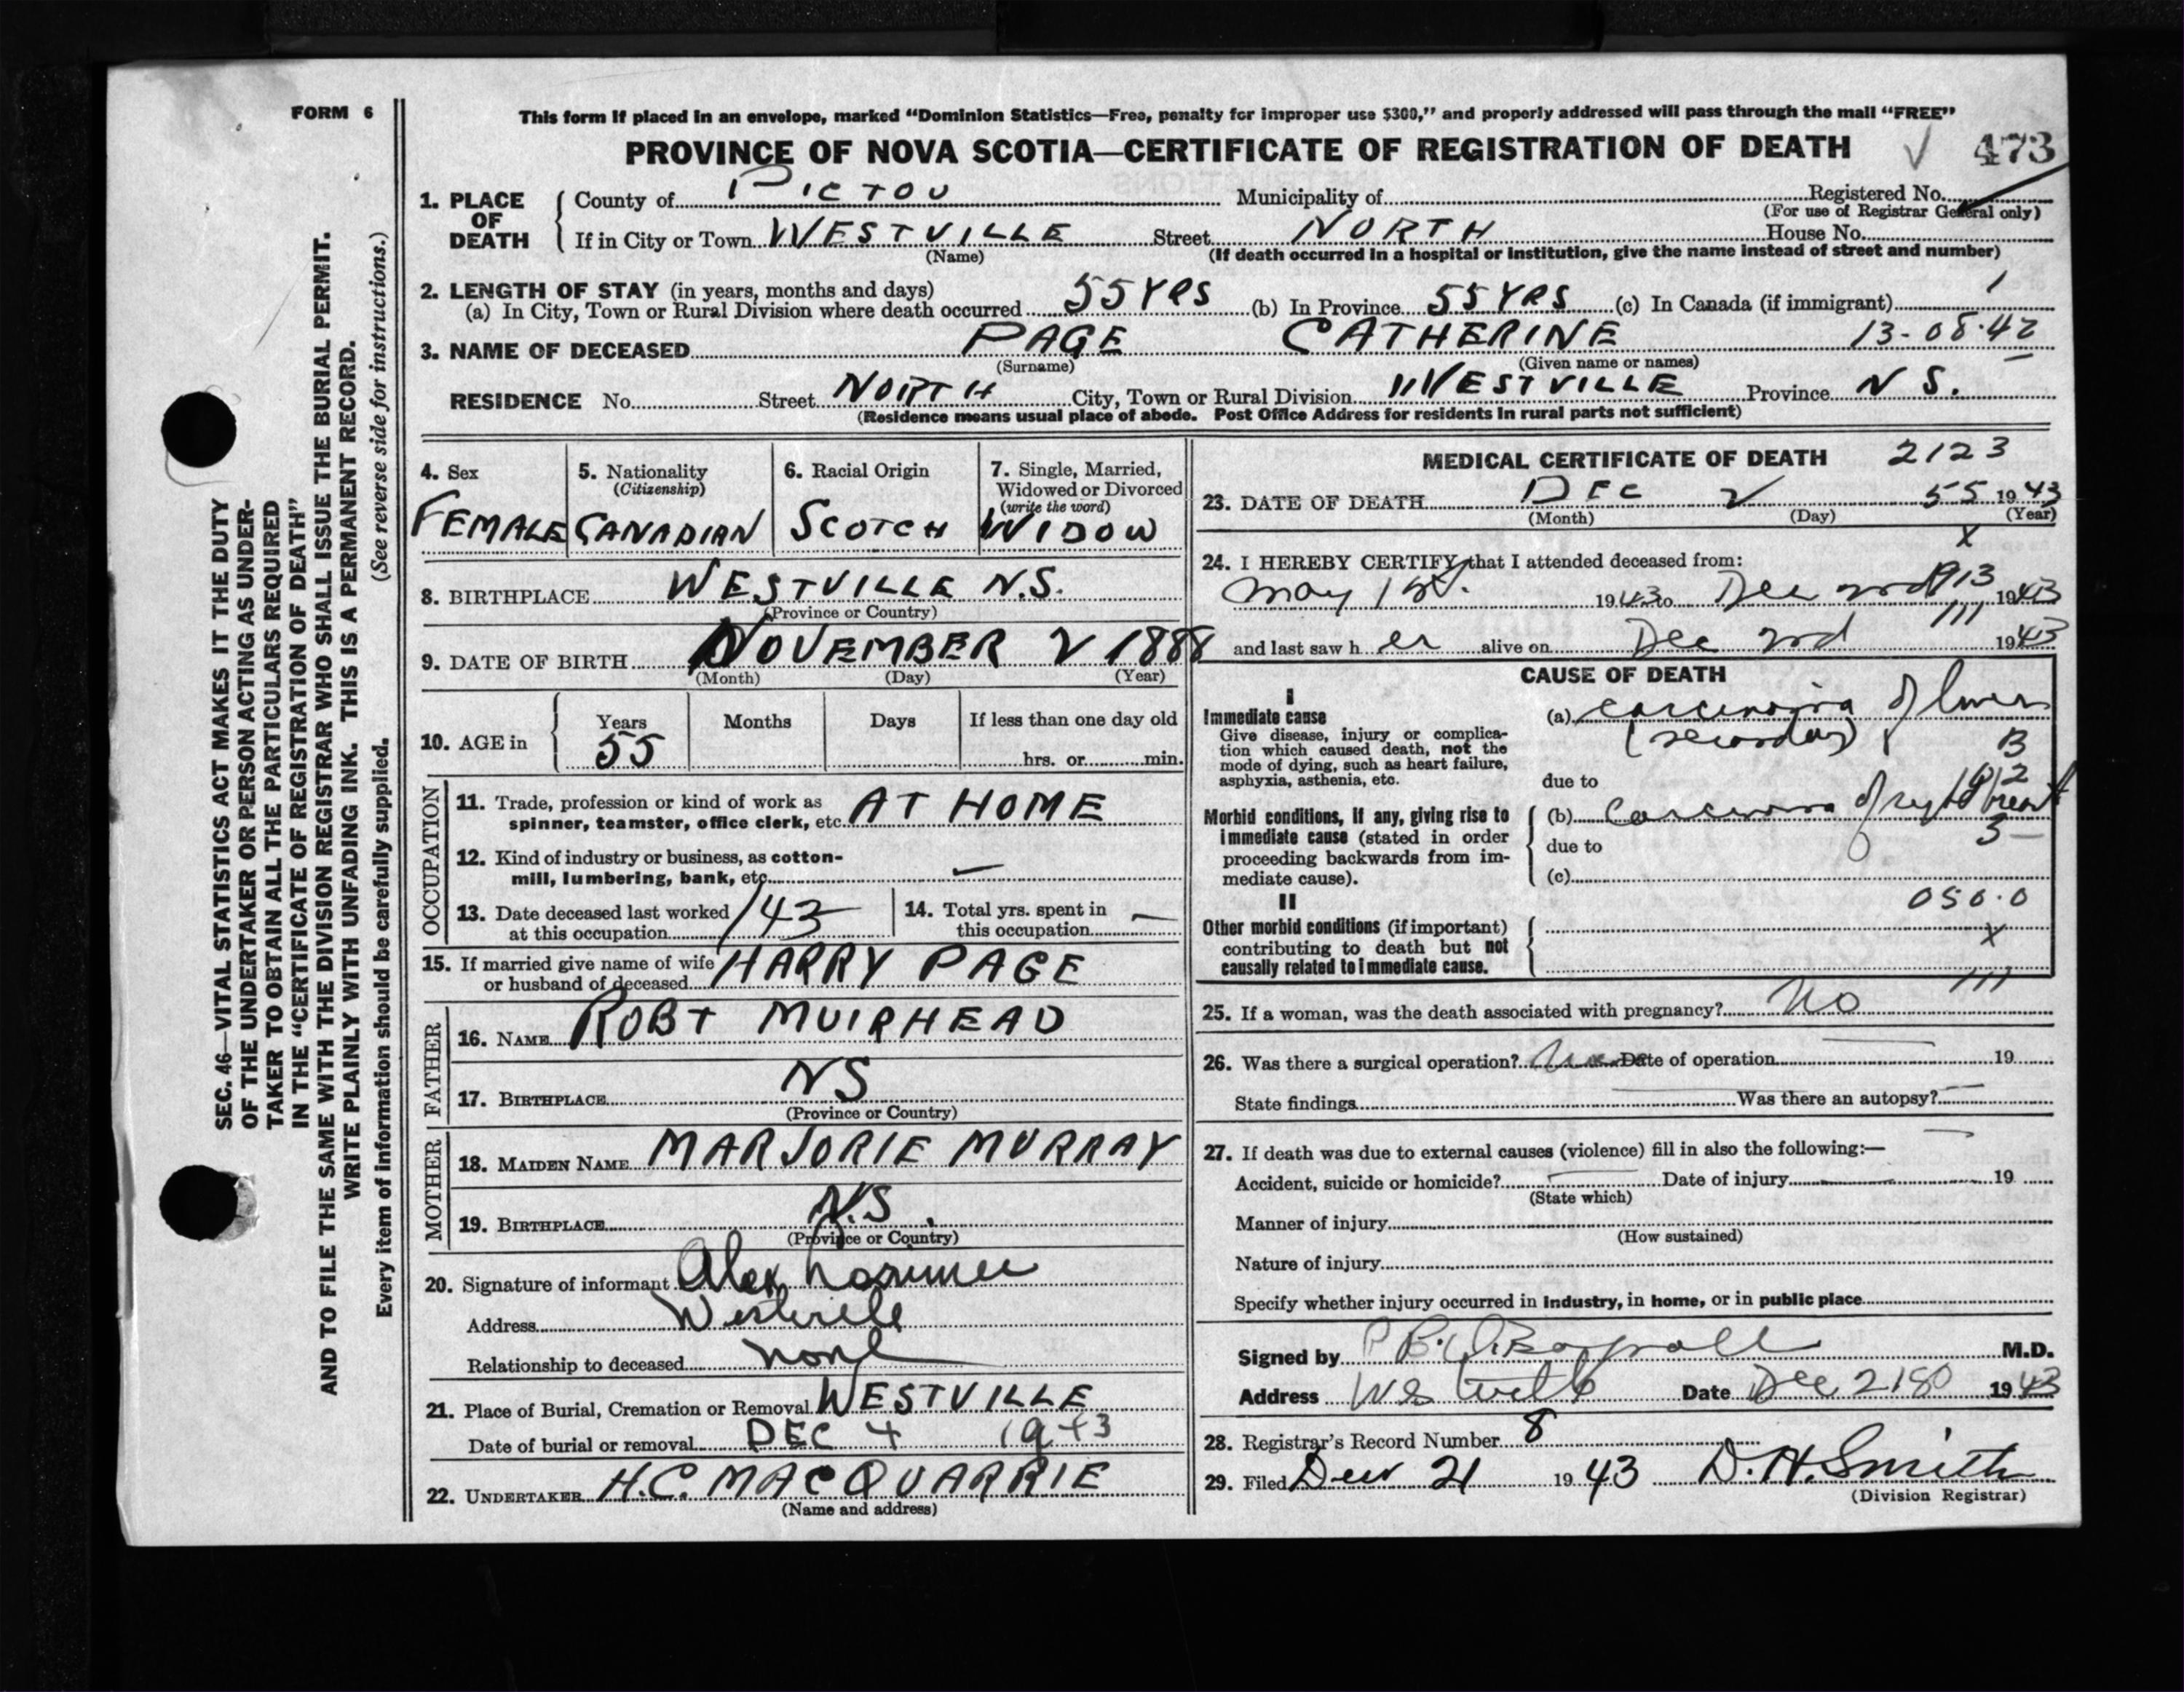 FORM 6
This form if placed in an envelope, marked "Dominion Statistics—Free, penalty for improper use $300," and properly addressed will pass through the mail "FREE"
PROVINCE OF NOVA SCOTIA—CERTIFICATE OF REGISTRATION OF DEATH 473
1. PLACE OF DEATH
County of PICTOU Municipality of Registered No.
(For use of Registrar General only)
If in City or Town WESTVILLE Street NORTH House No.
(Name) (If death occurred in a hospital or institution, give the name instead of street and number)
2. LENGTH OF STAY (in years, months and days)
(a) In City, Town or Rural Division where death occurred 55 YRS (b) In Province 55 YRS (c) In Canada (if immigrant)
3. NAME OF DECEASED PAGE CATHERINE 13-08-42
(Surname) (Given name or names)
RESIDENCE No. Street NORTH City, Town or Rural Division WESTVILLE Province N S.
(Residence means usual place of abode. Post Office Address for residents in rural parts not sufficient)
SEC. 46—VITAL STATISTICS ACT MAKES IT THE DUTY
OF THE UNDERTAKER OR PERSON ACTING AS UNDER-
TAKER TO OBTAIN ALL THE PARTICULARS REQUIRED
IN THE "CERTIFICATE OF REGISTRATION OF DEATH"
AND TO FILE THE SAME WITH THE DIVISION REGISTRAR WHO SHALL ISSUE THE BURIAL PERMIT.
WRITE PLAINLY WITH UNFADING INK. THIS IS A PERMANENT RECORD.
Every item of information should be carefully supplied. (See reverse side for instructions.)
4. Sex
FEMALE
5. Nationality
(Citizenship)
CANADIAN
6. Racial Origin
SCOTCH
7. Single, Married,
Widowed or Divorced
(write the word)
WIDOW
8. BIRTHPLACE WESTVILLE N.S.
(Province or Country)
9. DATE OF BIRTH NOVEMBER 2 1888
(Month) (Day) (Year)
10. AGE in
Years Months Days If less than one day old
55 hrs. or min.
OCCUPATION
11. Trade, profession or kind of work as
spinner, teamster, office clerk, etc. AT HOME
12. Kind of industry or business, as cotton-
mill, lumbering, bank, etc. —
13. Date deceased last worked
at this occupation 143
14. Total yrs. spent in
this occupation —
15. If married give name of wife
or husband of deceased HARRY PAGE
FATHER
16. NAME ROBT MUIRHEAD
17. BIRTHPLACE NS
(Province or Country)
MOTHER
18. MAIDEN NAME MARJORIE MURRAY
19. BIRTHPLACE N.S.
(Province or Country)
20. Signature of informant Alex
Address Westville
Relationship to deceased none
21. Place of Burial, Cremation or Removal WESTVILLE
Date of burial or removal DEC 4 1943
22. UNDERTAKER H.C. MACQUARRIE
(Name and address)
MEDICAL CERTIFICATE OF DEATH 2123
23. DATE OF DEATH DEC 2 55 1943
(Month) (Day) (Year)
X
24. I HEREBY CERTIFY that I attended deceased from:
May 1st 1943 to Dec 2nd 913 1943
111
and last saw h er alive on Dec 2nd 1943
CAUSE OF DEATH
I
Immediate cause
Give disease, injury or complica-
tion which caused death, not the
mode of dying, such as heart failure,
asphyxia, asthenia, etc.
(a) Carcinoma of liver
(secondary)
B
due to
Morbid conditions, if any, giving rise to
immediate cause (stated in order
proceeding backwards from im-
mediate cause).
(b) Carcinoma of right breast
3 –
due to
(c)
050.0
II
Other morbid conditions (if important)
contributing to death but not
causally related to immediate cause.
X
111
25. If a woman, was the death associated with pregnancy? No
26. Was there a surgical operation? Date of operation 19
State findings Was there an autopsy?
27. If death was due to external causes (violence) fill in also the following:—
Accident, suicide or homicide? Date of injury 19
(State which)
Manner of injury
(How sustained)
Nature of injury
Specify whether injury occurred in industry, in home, or in public place
Signed by M.D.
Address Westville Date Dec 1943
28. Registrar's Record Number 8
29. Filed Dec 21 1943 D. H. Smith
(Division Registrar)